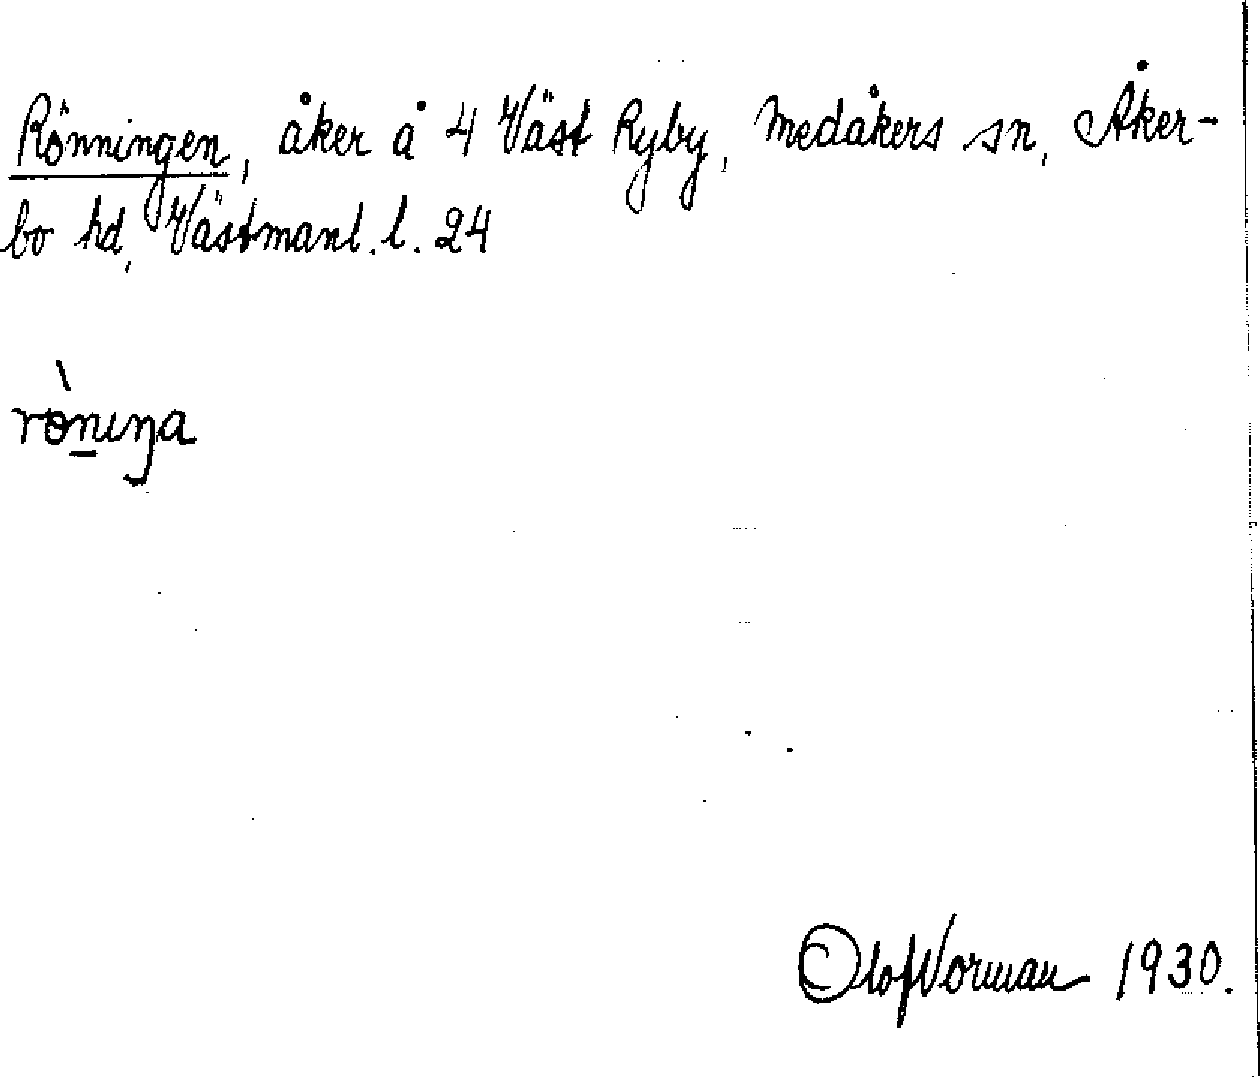 Rönningen, åker å 4 Väst Ryby, Medåkers sn, Åker-
bo hd, Västmanl. l. 24
rɵ̀nıŋa
Olof Norman 1930.